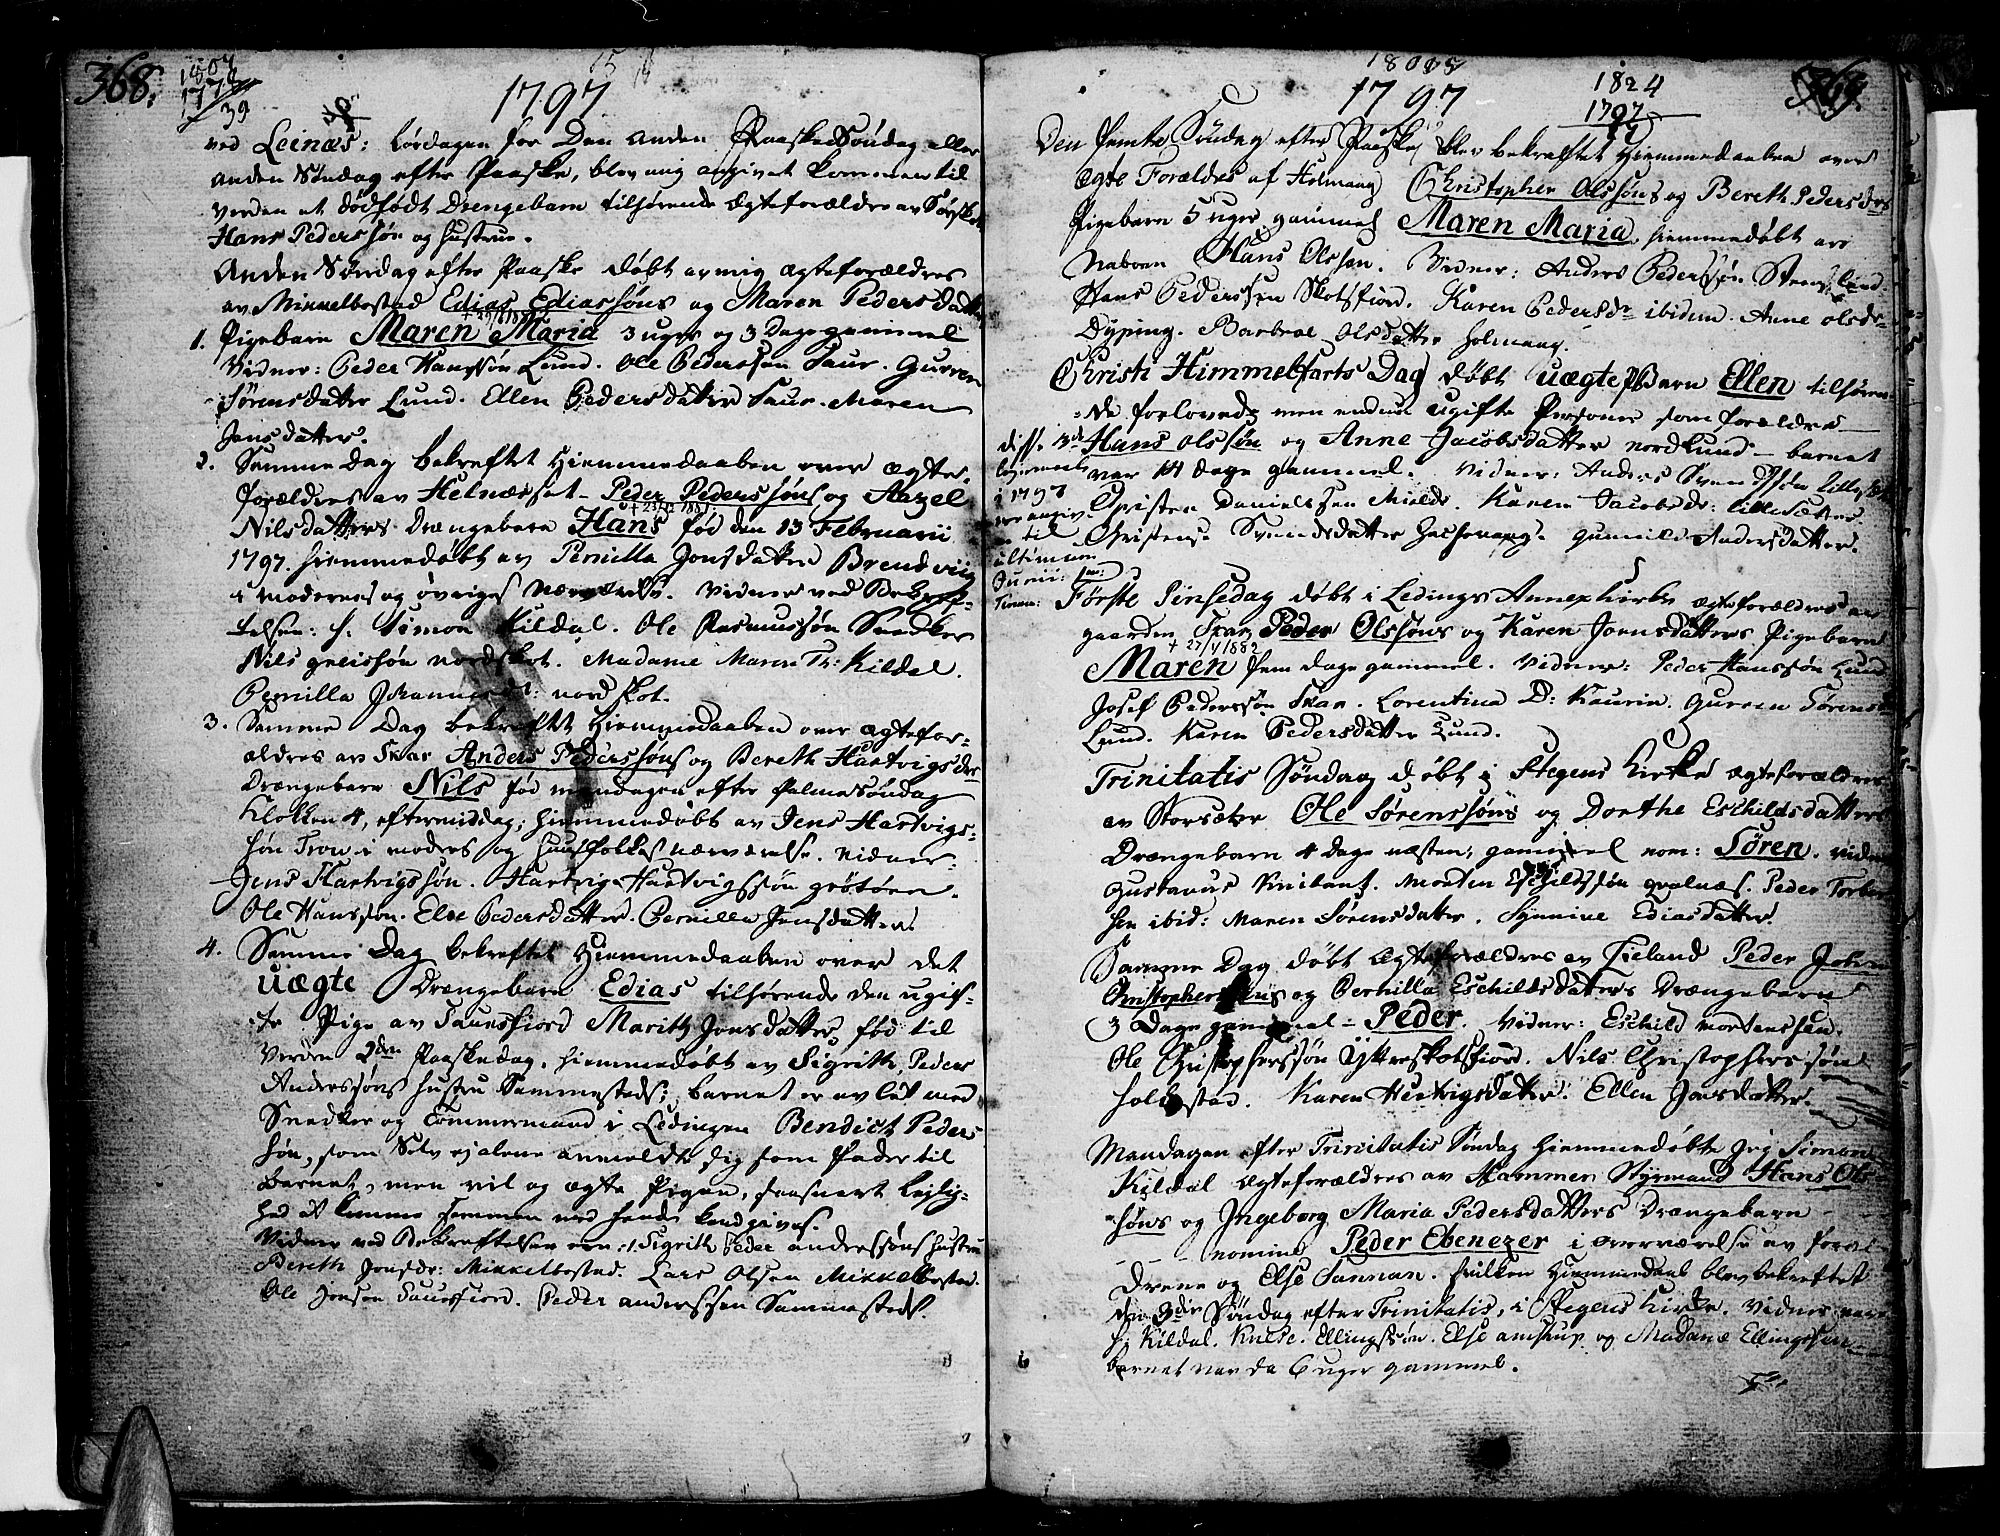 368.
1797
ved Leinæs: Lørdagen for Den anden Paaske Søndag eller
anden Søndag efter Paaske, blev mig angivet kommen til
Verden et dødfødt Drengebarn tilhørende Ægteforældre av
Hans Pederssøn og Hustrue.
Anden Søndag efter Paaske døbt av mig Ægteforældres
av Mikkelbostad Edias Ediassøns og Maren Pedersdatters
1. Pigebarn Maren Maria 3 uger og 3 Dage gammel
Vidner: Peder Hanssøn Lund. Ole Pederssøn Saur. Gurren
Sørensdatter Lund. Ellen Pedersdatter Saur. Maren
Jensdatter.
2. Samme Dag bekreftet Hiemmedaaben over Ægte-
forældres av Helnæsset Peder Pederssøns og Aazel
+ 23/12 1881.
Nilsdatters Drængebarn Hans fød den 13 Februarii
1797. hiemmedøbt av Pernilla Jonsdatter Brendviig
i moderens og øvriges nærværelse. Vidner ved Bekref-
telsen: H. Simon Kildal. Ole Rasmussøn Snedker
Nils greissøn Nordskot. Madame Maren Kildal.
Pernilla Johannesdr: Nordskot.
3. Samme Dag bekreftet Hiemmedaaben over Ægtefor-
ældres av Skar Anders Pederssøns og Bereth Hartvigsdrs
Drængebarn Nils fød mandagen efter Palmesøndag
Klokken 4, eftermiddag; hiemmedøbt av Jens Hartvigs-
søn Tron i moders og huusfolkes nærværelse. Vidner:
Jens Hartvigssøn. Hartvig Hartvigssøn grøtøen.
Ole Hanssøn. Else Pedersdatter. Pernilla Jensdatter.
4. Samme Dag bekreftet Hiemmedaaben over det
uægte Drængebarn Edias tilhørende den ugif-
te Pige av Saursfiord Marith Jonsdatter fød til
Verden 2den Paaskedag, hiemmedøbt av Sigrith, Peder
Anderssøns hustru Sammesteds; barnet er avlet med
Snedker og Tømmermand i Ledingen Bendict Peders
søn, som Selv anmeldte sig som Fader til
Barnet, men vil og ægte Pigen, saasnart Leylig-
hed at komme sammen med hende kand gives.
Vidner ved Bekreftelsen ere: 1. Sigrith Peder anderssøns hustru
Bereth Jonsdr: Mikkelbostad. Lars Olsen Mikkelbostad.
Ole Jonsen Saursfiord. Peder anderssen Sammesteds.
369
1824
1797
1797
Den femte Søndag efter Paaske, blev bekreftet Hiemmedaaben over
Ægte Forældres af Holmaag Christopher Olssøns og Bereth Pedersdrs
Pigebarn 5 uger gammel Maren Maria, hiemmedøbt av
Naboen Hans Olssen. Vidner: Anders Pederssøn Stensland.
Hans Pederssen Skotsfiord. Karen Pedersdr ibidem. Anne Olsdr
Dyping. Barbroe Olsdatter Holmaag.
Christi Himmelfarts Dag døbt uægte PBarn Ellen tilhøren-
de forlovede men endnu ugifte Personer som forældre
Hans Olssøn og Anne Jacobsdatter Nordlund barnet
var 14 Dage gammel. Vidner: Anders
Christen Danielssen Karen Jacobsdr:
Christense Svendsdatter gunnild Andersdatter.
Første Pinsedag døbt i Ledings Annexkirke Ægteforældres av
gaarden Skar Peder Olssøns og Karen Joensdatters Pigebarn
+ 27/4 1882
Maren fem dage gammel. Vidner: Peder Hanssøn Lund
Josef Pederssøn Skar. Lorentina D: Kaurin. Gurren Sørensdr
Lund. Karen Pedersdatter Lund.
Trinitatis Søndag døbt i Stegens Kirke Ægteforældres
av Storsæter Ole Sørenssøns og Dorthe Eschildsdatters
Drængebarn 4 dage næsten gammel nom: Søren. Vidner
Gustavus Morten Eschildssøn qvalnæs. Peder
sen ibid: Maren Sørensdatter. Synnive Ediasdatter.
Samme Dag døbt Ægteforældres av Fieland Peder Johan
Christophers og Pernilla Eschildsdatters Drængebarn
3 Dage gammel Peder. Vidner: Eschild Mortenssen.
Ole Christopherssøn Ytterskotsfiord. Nils Christopherssøn
Holkestad. Karen Hertvigsdatter. Ellen Jonsdatter.
Mandagen efter Trinitatis Søndag hiemmedøbte Jeg Simon
Kildal Ægteforældres av Hammer Styrmand Hans Ols
søns og Ingeborg Maria Pedersdatters Drængebarn
nomine Peder Ebenezer i overværelse av foræl-
drene og Else Sannan. hvilken Hiemmedaab blev bekreftet
den 3die Søndag efter Trinitatis, i Stegens Kirke. Vidner var
H: Kildal. Ellingssøn. Else amstrup og Madame Ellingssen
barnet var da 6 uger gammel.